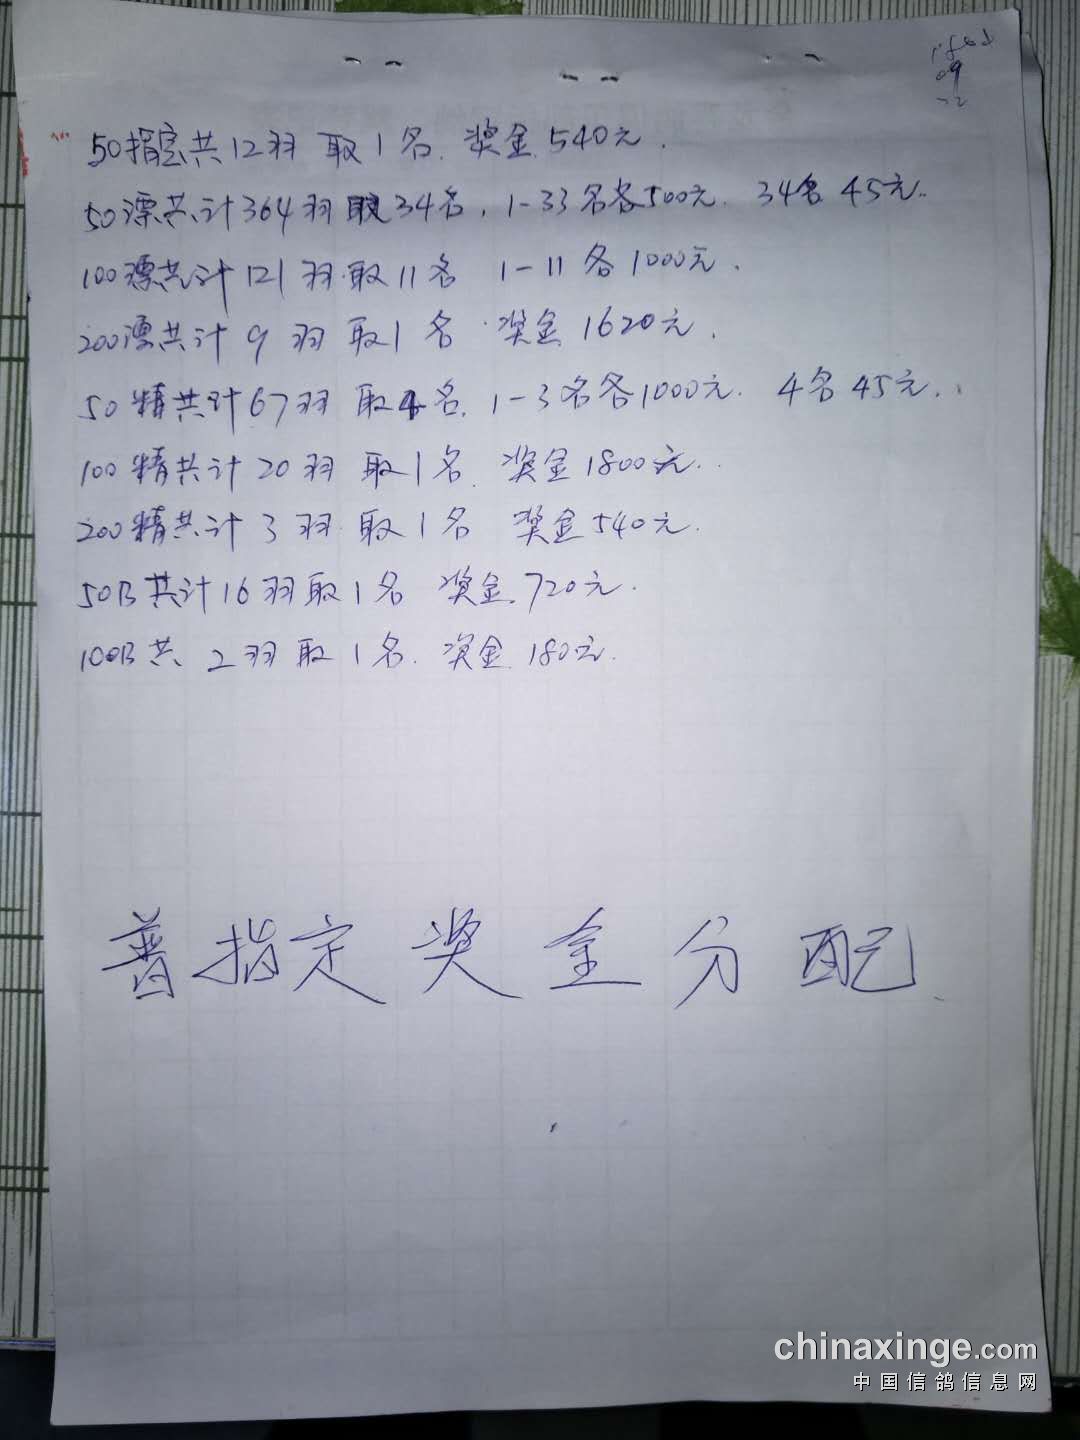 09
50指定共12羽 取1名. 奖金540元.
50漂共计364羽取34名. 1-33名各500元. 34名45元..
100漂共计121羽.取11名 1-11各1000元.
200漂共计9羽取1名 奖金1620元.
50精共计67羽 取4名. 1-3名各1000元. 4名45元..
100精共计20羽 取1名. 奖金1800元..
200精共计3羽.取1名 奖金540元.
50B共计16羽取1名 奖金.720元.
100B共 2羽取1名. 奖金.180元.
普指定奖金分配
chinaxinge.com
中国信鸽信息网